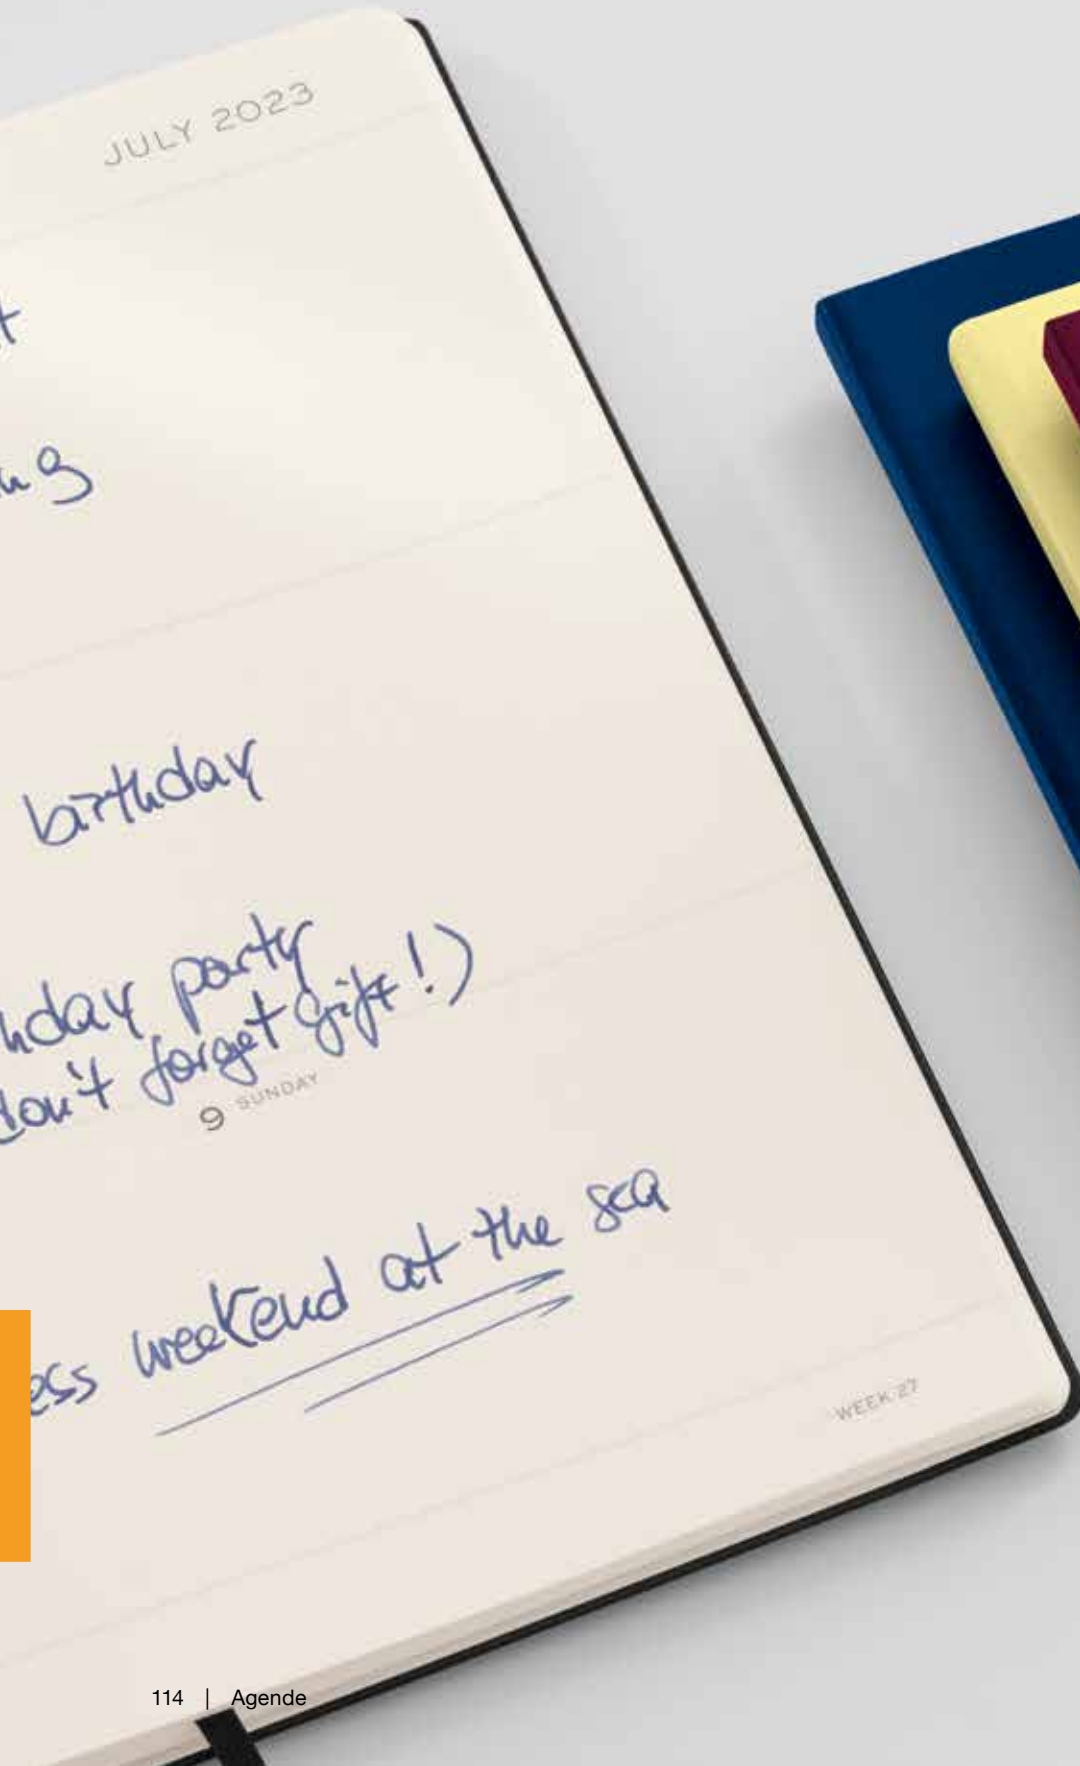 JULY 2023
birthday
hday party
don't forget gift!)
9 SUNDAY
ess weekend at the sea
WEEK 27
114 | Agende